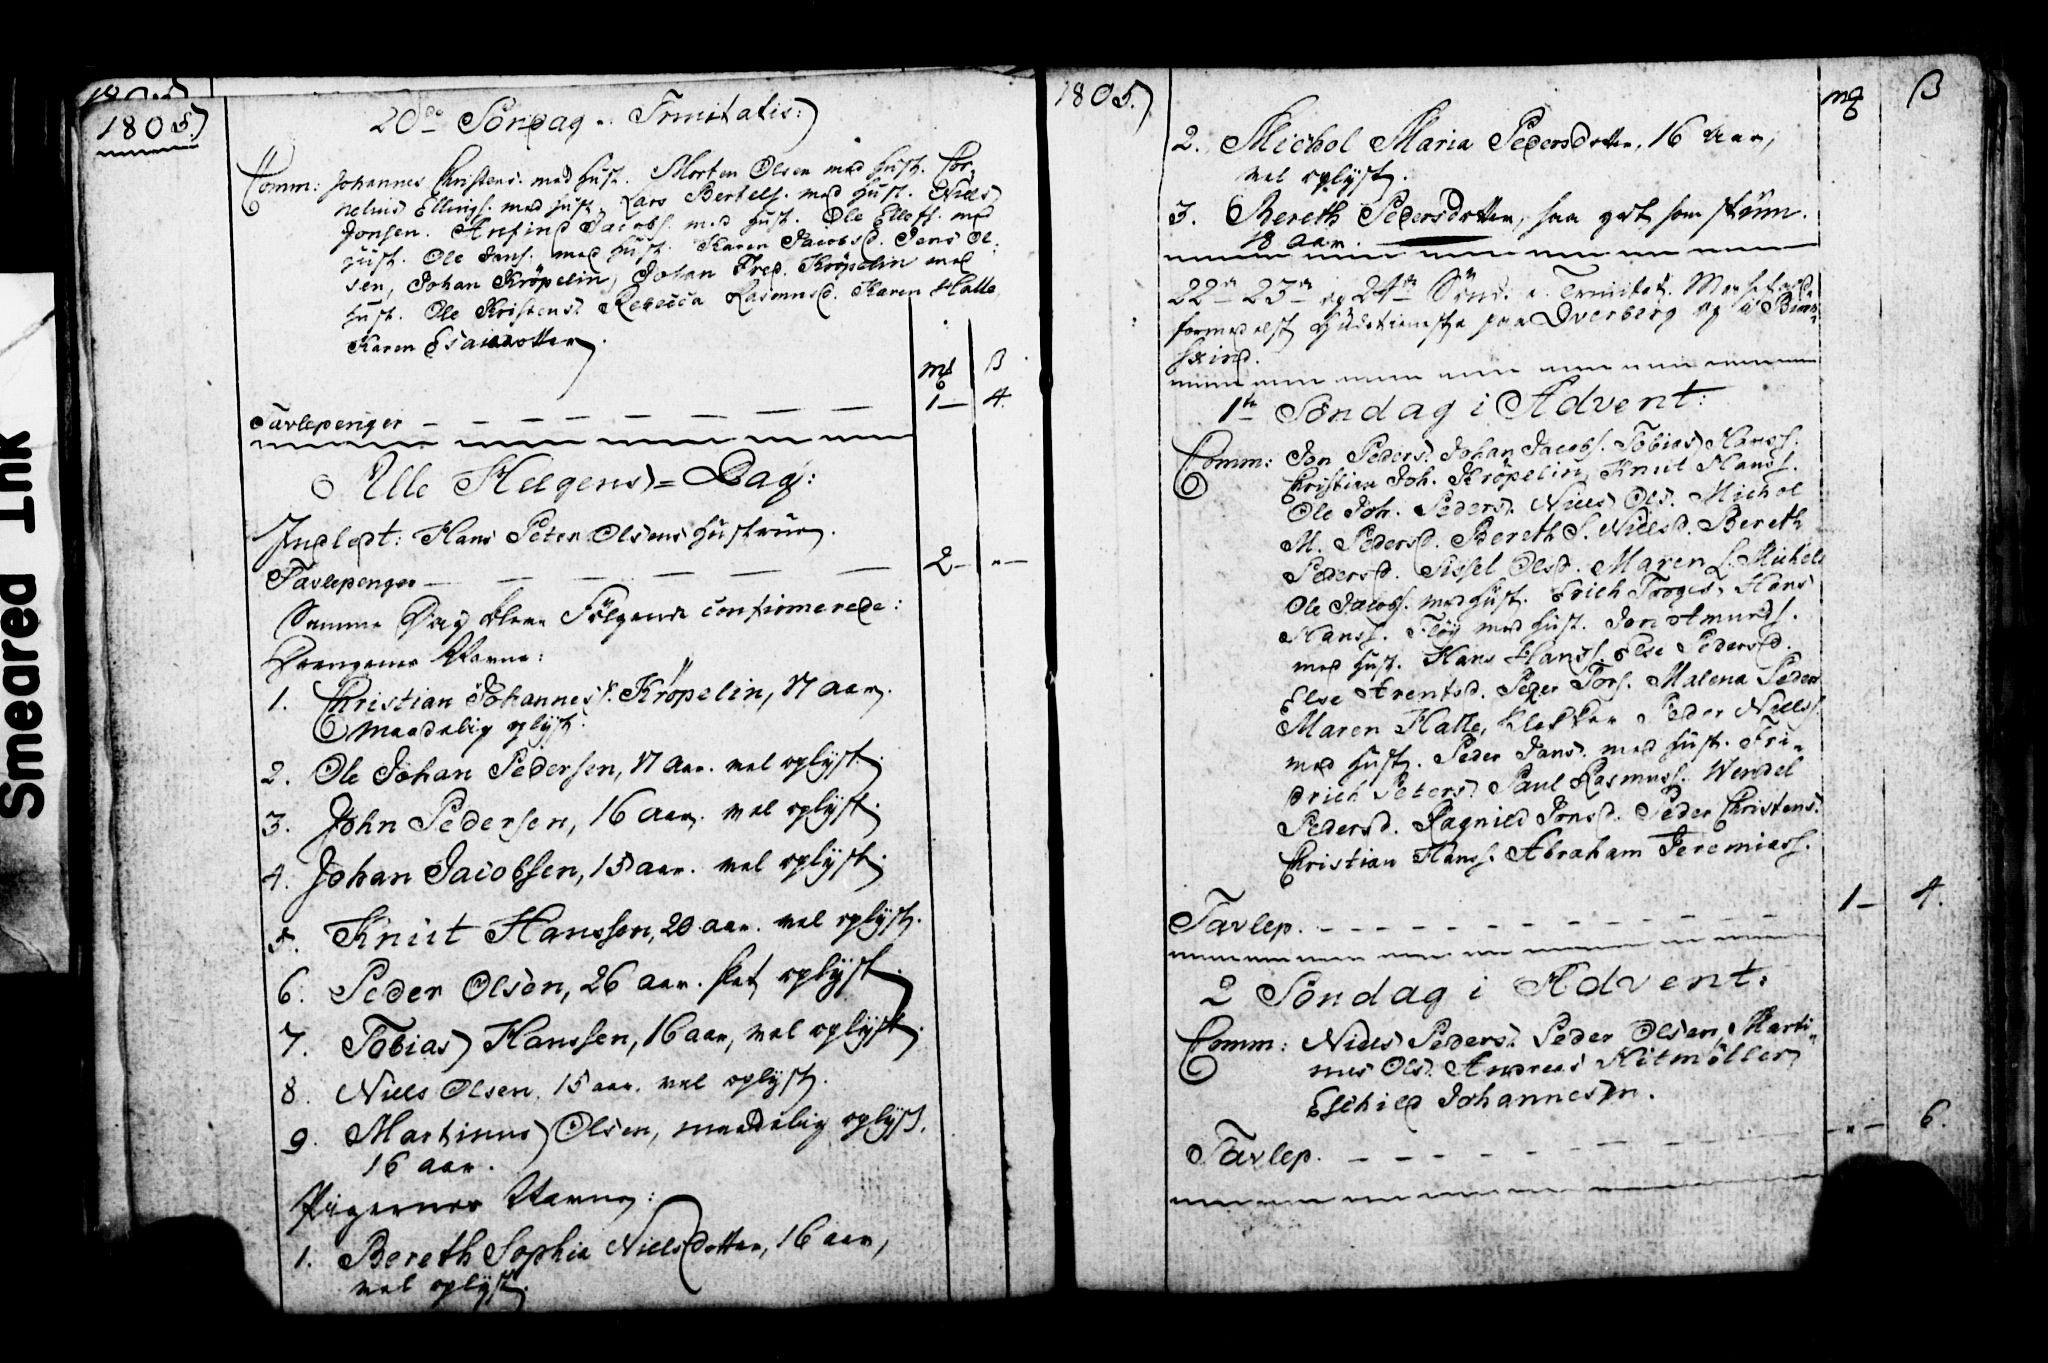 1805.
20de Söndag .. Trinitatis:
Comm: Johannes Christens. med Hust. Morten Olsen med Hust. Cor-
nelius Ellings. med Hust. Lars Bertels. med Hust. Niels
Jonsen. Anfind Jacobs. med Hust. Ole Ellefs. med
Hust. Ole Jans. med Hust. Karen Jacobsd. Jens Ol-
sen, Johan Kröpelin, Johan Fred. Kröpelin med
Hust. Ole Kristens. Rebecca Rasmusd. Karen Hatle,
Karen Esaiadotter.
mk ß
Tavlepenger — — — — — — 1— 4.
Alle Helgens=Dag:
Indledt: Hans Peter Olsens Hustrue.
Tavlepenger — — — — — — 2— "—
Samme Dag bleve Fölgende confirmerede:
Drengenes Navne:
1. Christian Johanness. Kröpelin, 17 aar.
maadelig oplyst.
2. Ole Johan Pedersen, 17 aar. vel oplyst.
3. John Pedersen, 16 aar. vel oplyst.
4. Johan Jacobsen, 15 aar. vel oplyst.
5. Knut Hanssen, 20 aar. vel oplyst.
6. Peder Olsen, 26 aar. slet oplyst.
7. Tobias Hanssen, 16 aar, vel oplyst.
8. Niels Olsen. 15 aar. vel oplyst.
9. Martinus Olsen, maadelig oplyst.
16 aar.
Pigernes Navne:
1. Bereth Sophia Nielsdotter, 16 aar,
vel oplyst.
Smeared Ink
1805.
mk ß
2. Michol Maria Pedersdotter, 16 aar,
vel oplyst.
3. Bereth Pedersdotter, saa got som stum.
18 aar.
22de 23de og 24de Sönd. .. Trinitat.
formedelst Gudstieneste paa Overberg og i
1te Söndag i Advent:
Comm: Jon Peders. Johan Jacobs. Tobias Hanss.
Christian Joh. Kröpelin, Knut Hanss.
Ole Joh. Peders. Niels Ols. Michol
M. Pedersd. Bereth S. Nielsd. Bereth
Pedersd. Sissel Olsd. Maren L. Michels
Ole Jacobs. med Hust. Erich Troges. Hans
Hanss. Flöy med Hust. Jon Amunds.
med Hust. Hans Hanss. Else Pedersd.
Else Arentsd. Peder Tors. Malena Peders
Maren Hatle, Klokker Peder Niels.
med Hust. Peder Jans. med Hust. Fri-
drich Peters. Paul Rasmuss. Wendel
Pedersd. Ragnild Jonsd. Peder Christens.
Christian Hanss. Abraham Jeremiass.
Tavlep. — — — — — — — 1— 4.
2 Söndag i Advent:
Comm: Niels Peders. Peder Olsen, Marti-
nus Ols. Andreas Kitmöller,
Eschild Johannesen.
Tavlep. — — — — — — —"— 6.